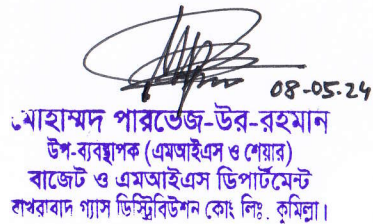 08-05-24
মোহাম্মদ পারভেজ-উর-রহমান
উপ-ব্যবস্থাপক (এমআইএস ও শেয়ার)
বাজেট ও এমআইএস ডিপার্টমেন্ট
বাখরাবাদ গ্যাস ডিস্ট্রিবিউশন কোং লিঃ, কুমিল্লা।